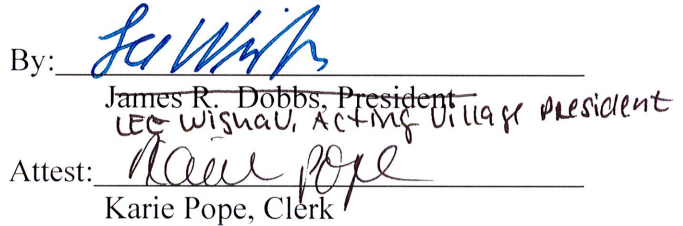 By: Lee Wishau
James R. Dobbs, President
LEE WISHAU, Acting Village President
Attest: Karie Pope
Karie Pope, Clerk